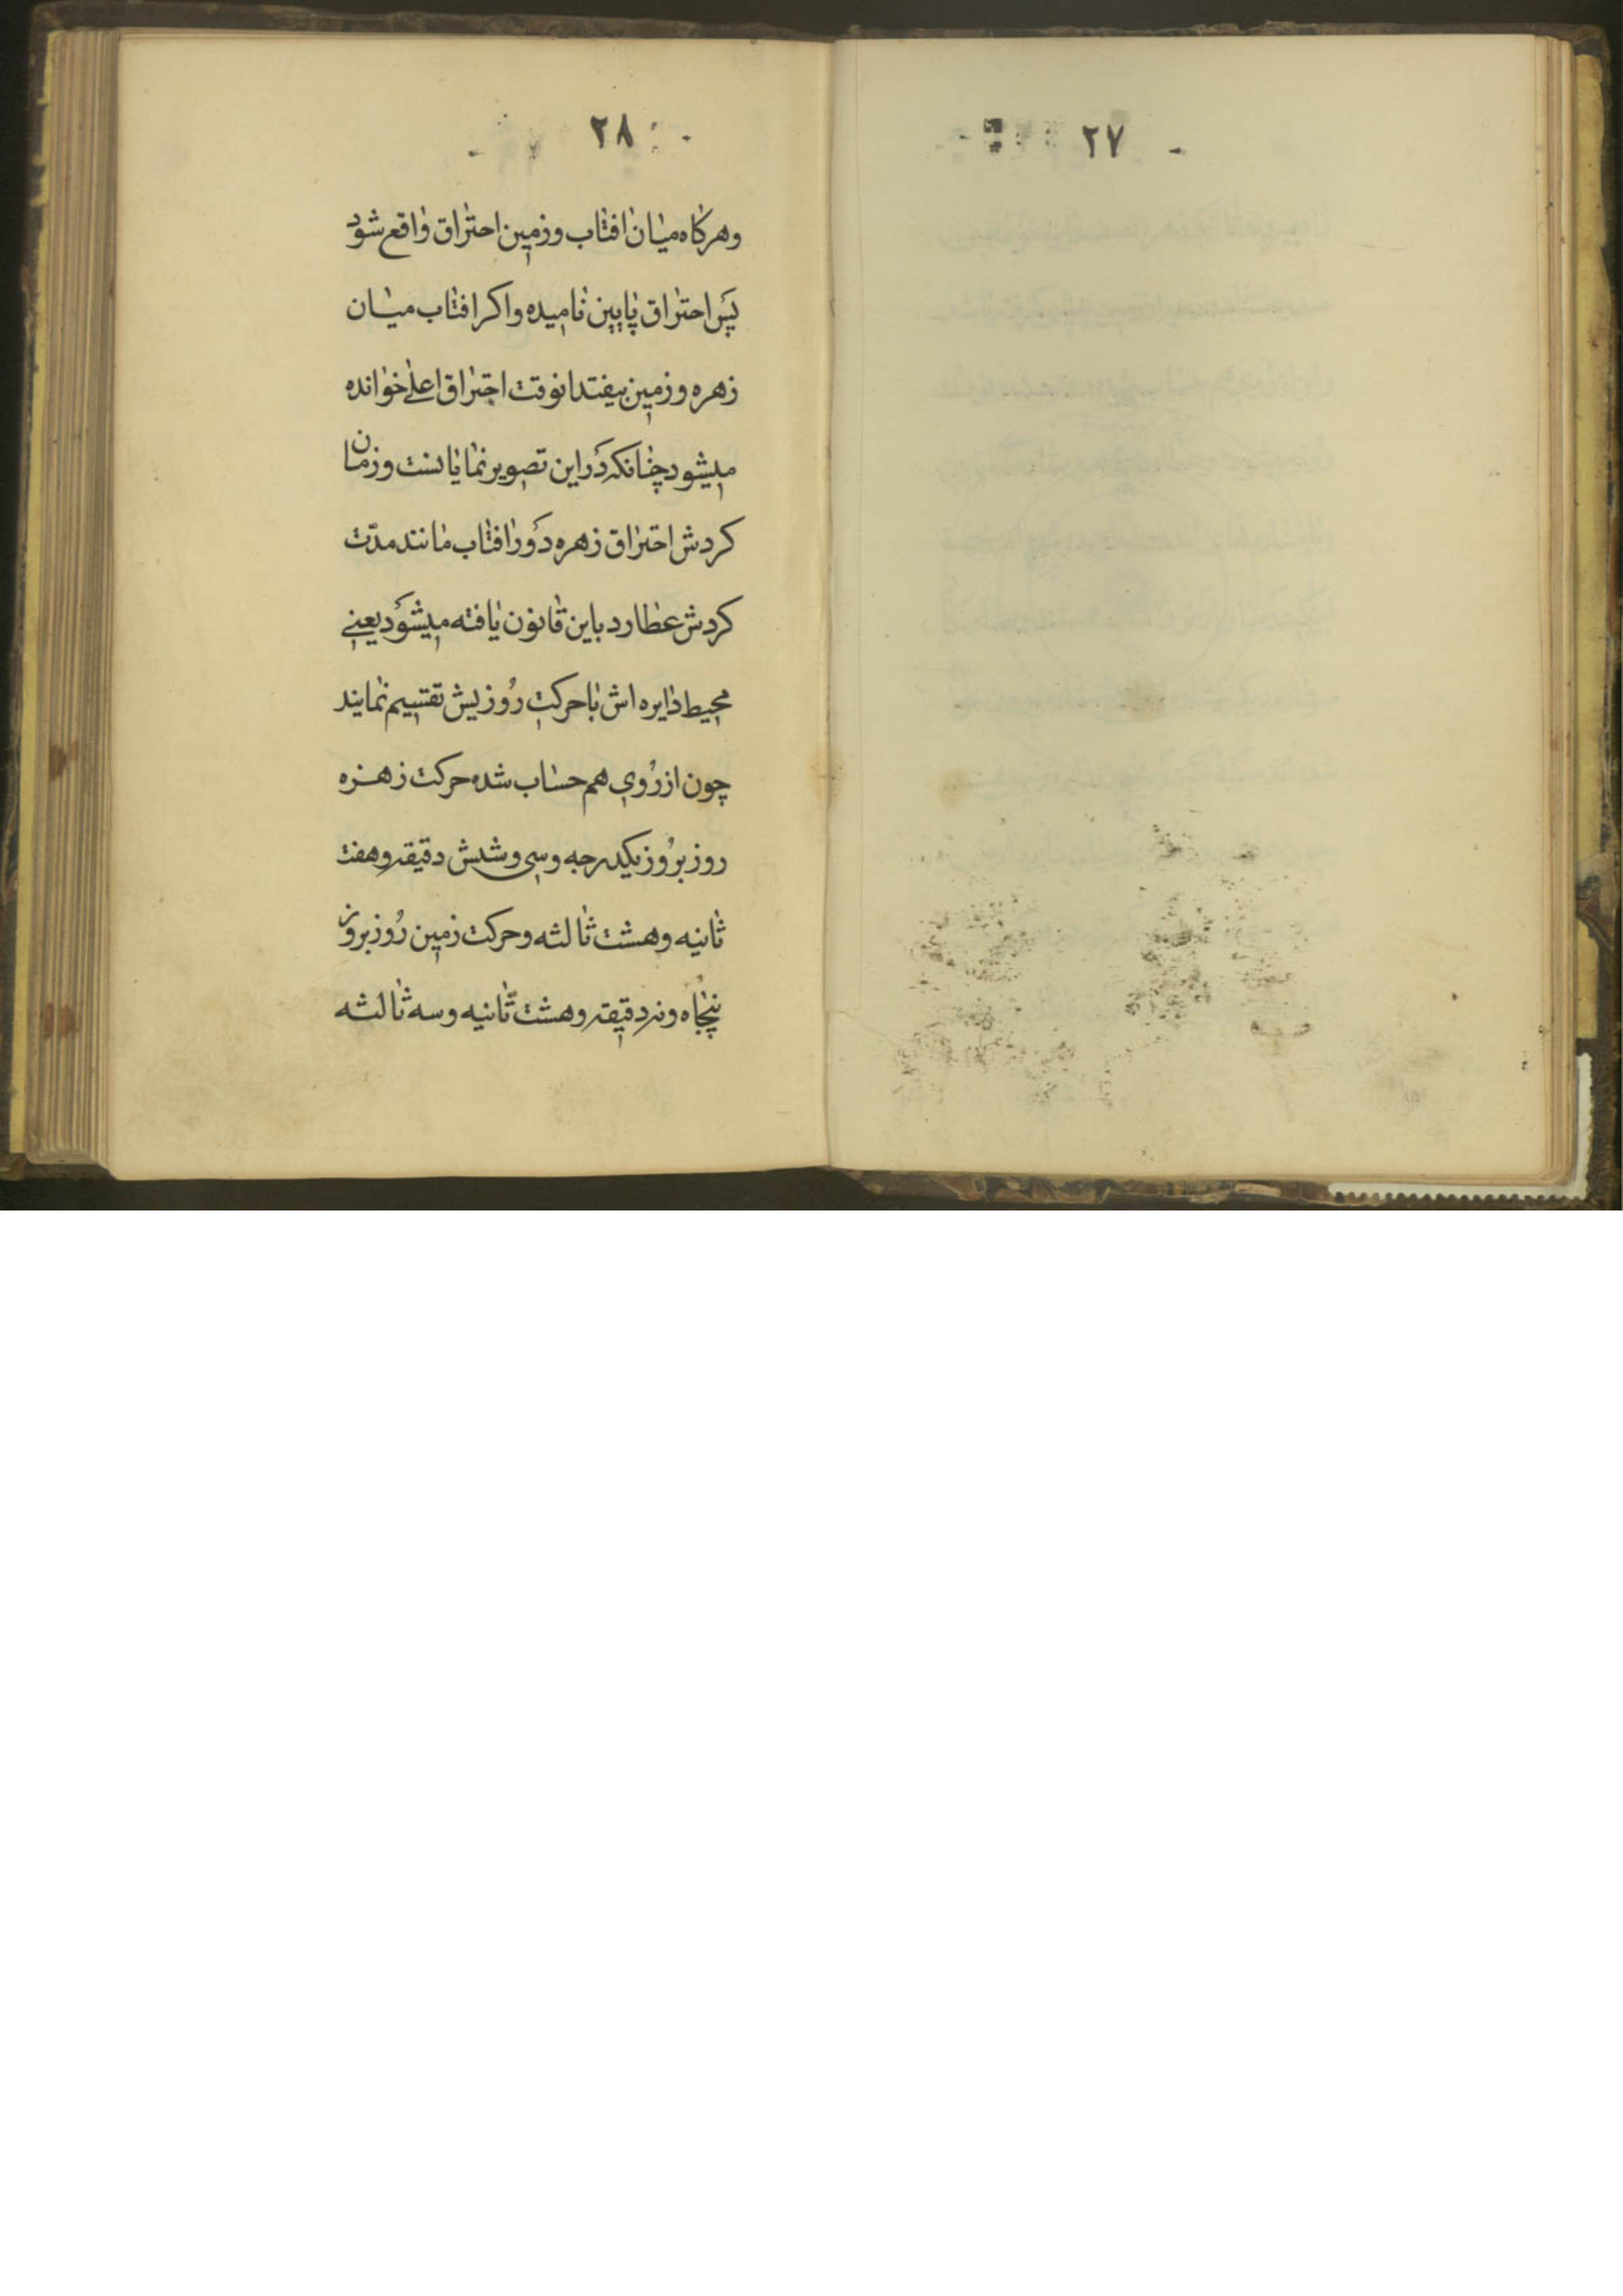 ۲۷
۲۸
وهرکاه میان افتاب وزمین احتراق واقع شود
پس احتراق پایین نامیده واکر افتاب میان
زهره وزمین بیفتد انوقت احتراق اعلی خوانده
میشود چنانکه در این تصویر نمایانست وزمان
کردش احتراق زهره دور افتاب مانند مدّت
کردش عطارد باین قانون یافته میشود یعنی
محیط دایره اش با حرکت روزیش تقسیم نمایند
چون از روی هم حساب شده حرکت زهره
روز بروز یکدرجه وسی وشش دقیقه وهفت
ثانیه وهشت ثالثه وحرکت زمین روز بروز
پنجاه ونه دقیقه وهشت ثانیه وسه ثالثه